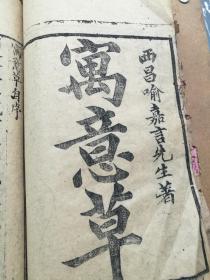 西昌喻嘉言先生著
寓意草
寓意草自序